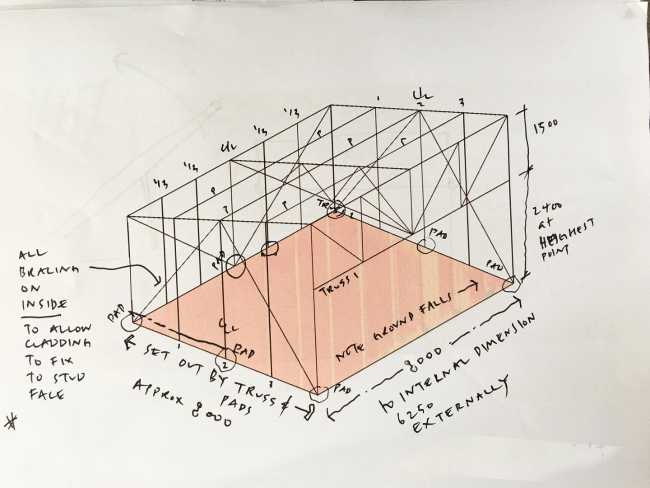 1
2
3
1500
2400
at
HIGHEST
POINT
ALL
BRACING
ON
INSIDE
TO ALLOW
CLADDING
TO FIX
TO STUD
FACE
PAD
PAD
PAD
PAD
PAD
PAD
TRUSS 1
NOTE GROUND FALLS
1
2
3
SET OUT BY TRUSS &
PADS
APPROX 8000
8000
to INTERNAL DIMENSION
6250
EXTERNALLY